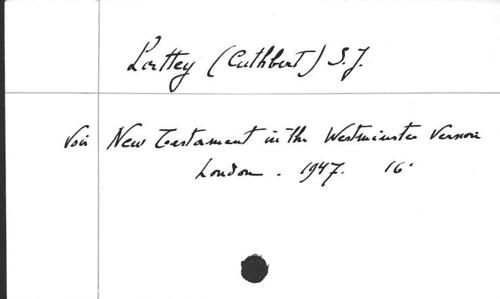 Lattey (Cuthbert) S.J.
Voir New Testament in the Westminster Version
London. 1947. 16°